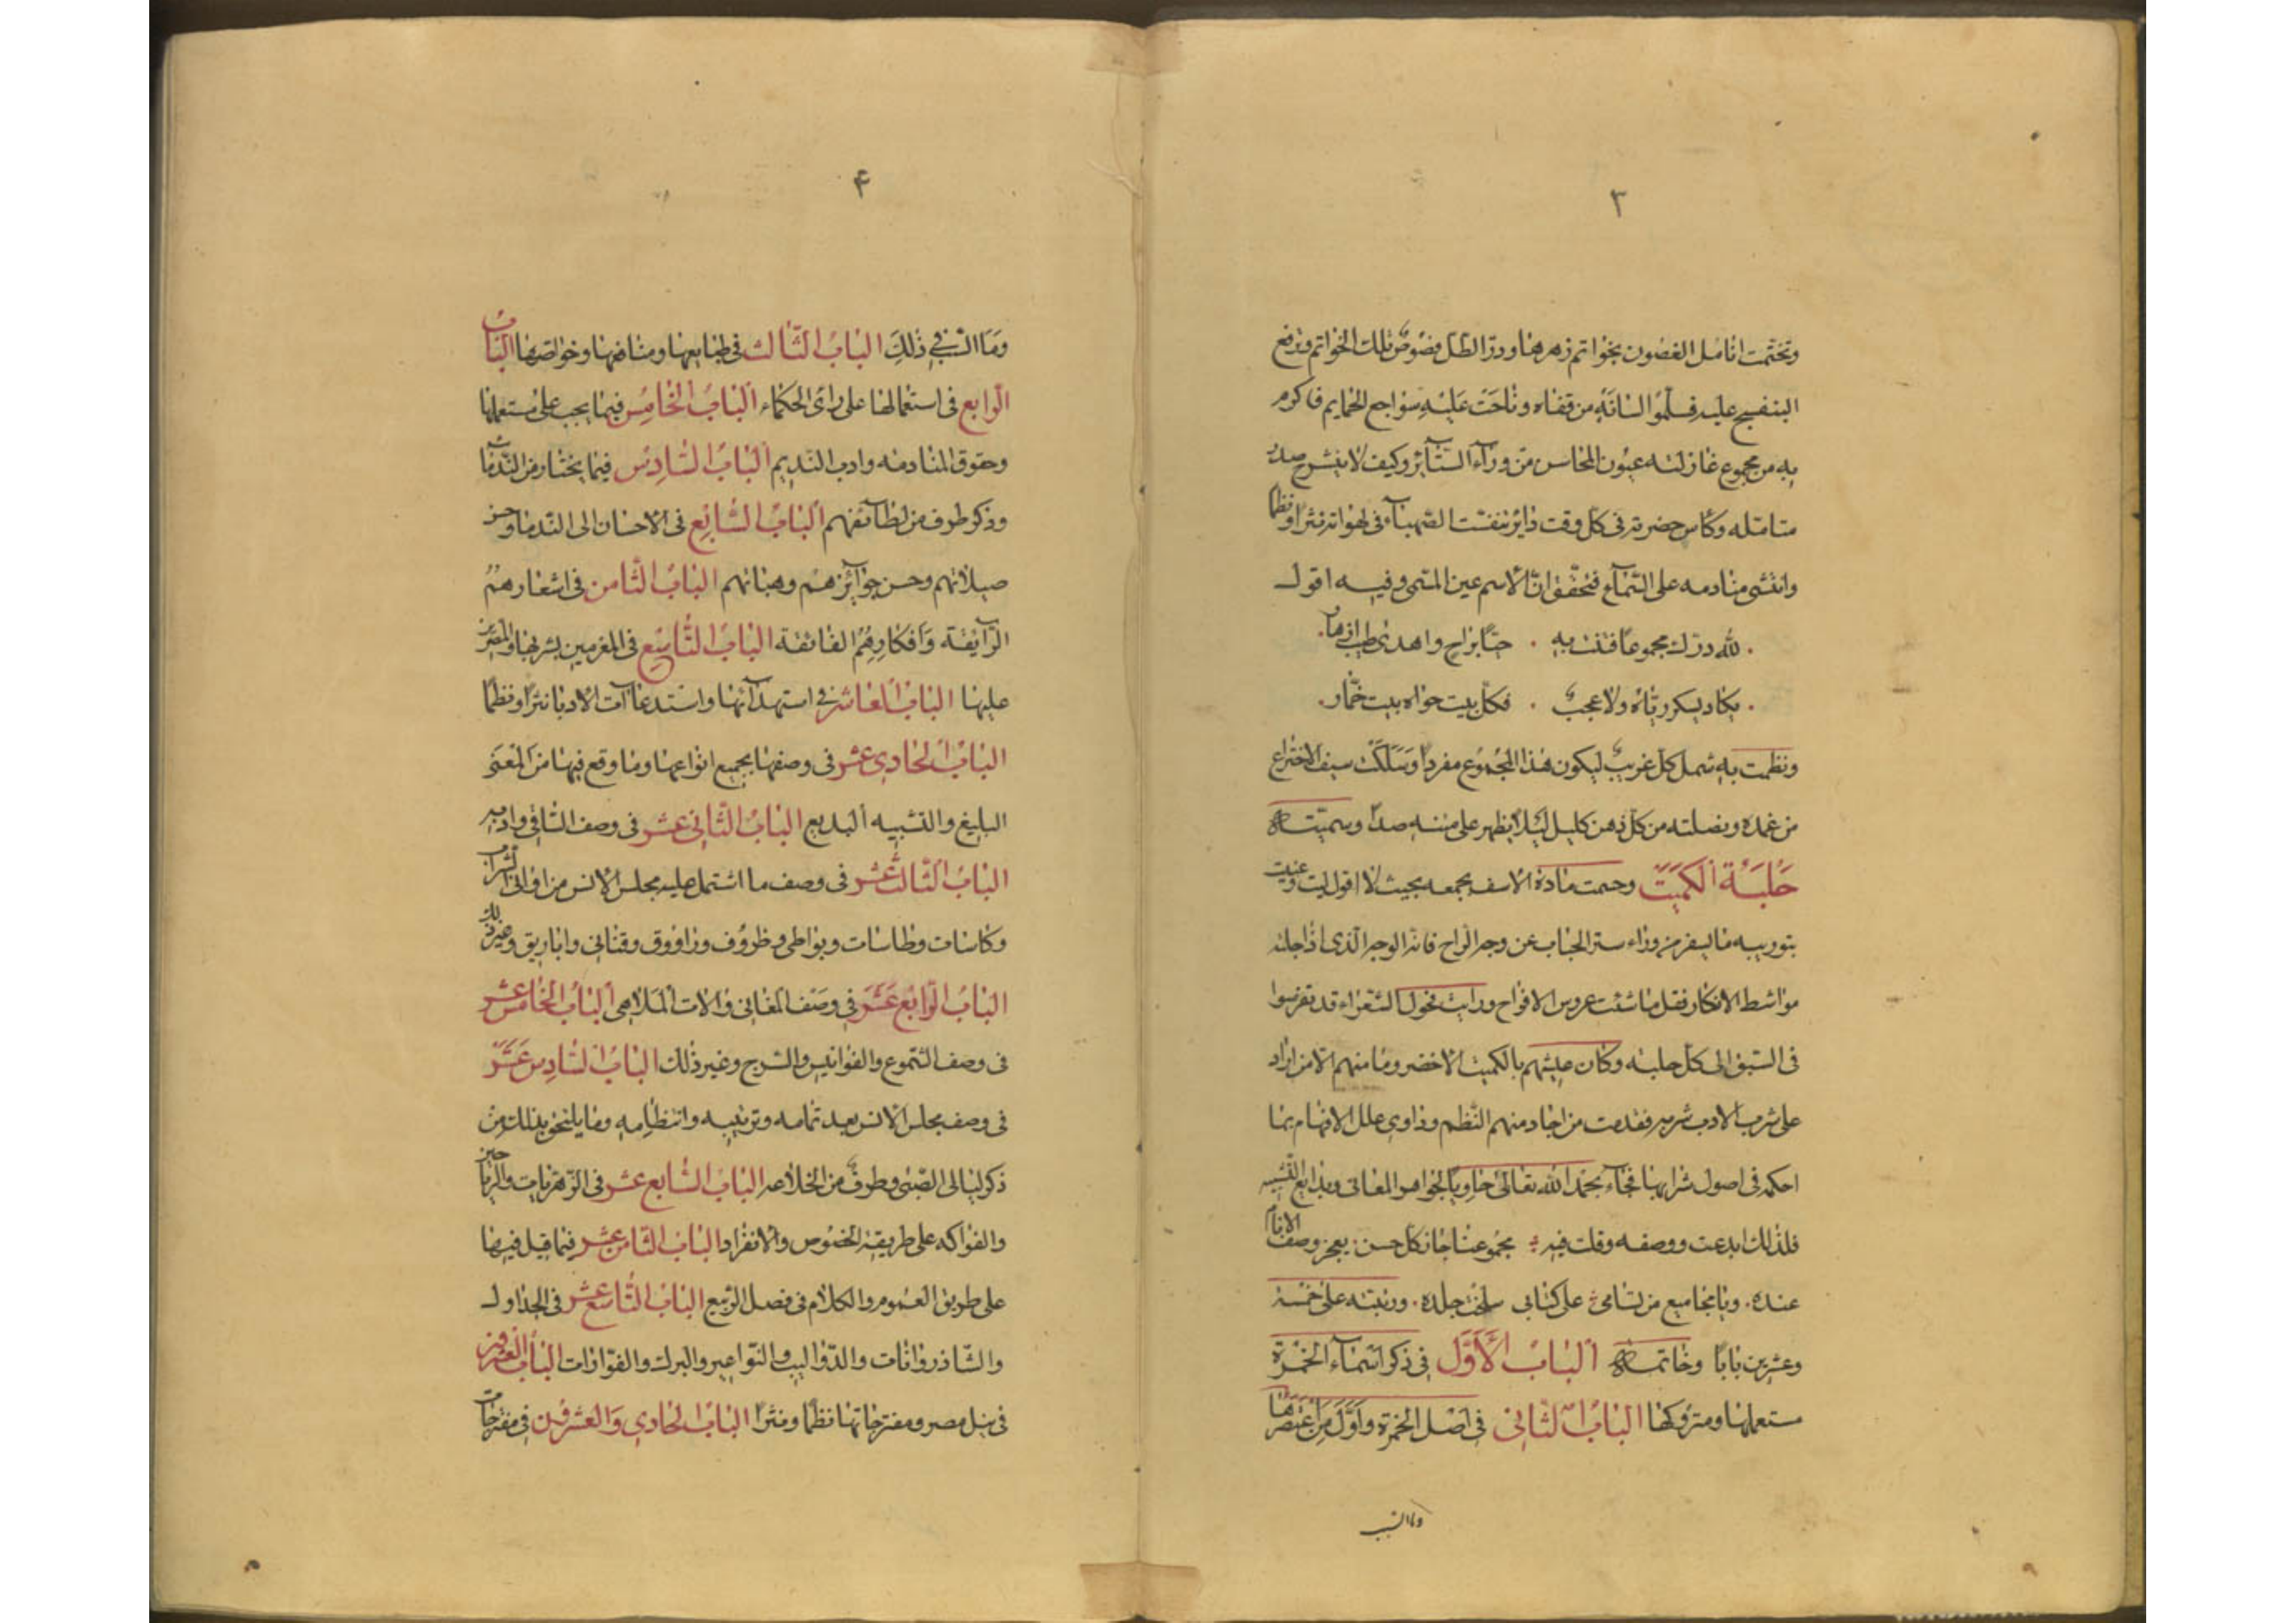 ٣
وتختمت انامل الغصون بخواتم زهرها ودرّ الطلّ فصوص تلك الخواتم ورفع
البنفسج عليه فسلّوا لسانه من قفاه وناحت عليه سواجع الحمايم فاكرم
به من مجموع غازلته عيون المحاسن من ورآء الستآئر وكيف لا ينشرح صدر
متامّله وكاس حضرته فى كل وقت داير تنفست الصّهبآء فى لهواته نثرا ونظما
وانتشى منادمه على السّماع فتحقّق انّ الاسم عين المسمى وفيه اقول
لله درّك مجموعا فتنت به . حيّا براح واهدى طيب ازهار.
. يكاد يسكر ريّاه ولا عجب . فكل بيت حواه بيت خمّار.
ونظمت به شمل كل غريب ليكون هذا المجموع مفردا وسللت سيف الاختراع
من غمده ونصلته من كل ذهن كليل لئلا يظهر على متنه صدأ وسميّته
حَلبَة الكميت وحسمت مادة الاسف بجمعه بحيث لا اقول ليت وعنيت
بتوريبه ما يسفر من ورآء ستر الحباب عن وجه الراح فانه الوجه الذى اذا جلته
مواشط الافكار فقل ما شئت عروس الافراح ورايت فحول الشعراء قد تفرسوا
فى السبق الى كل حلبه وكان عيشهم بالكميت الاخضر وما منهم الا من اراد
على شرب الادب شربه فقدمت من اجاد منهم النّظم وداوى علل الافهام بما
احكمه فى اصول شرابها فجآء بحمد الله تعالى حاويا لجواهر المعانى وبدايع التشبيه
فلذلك ابدعت ووصفه وقلت فيه مجموعنا حاز كل حسن . يعجز وصف الانام
عنده . ويا مجاميع من تسامى على كتابى سلخت جلده . ورتبته على خمسة
وعشرين بابا وخاتمة الباب الاوّل فى ذكر اسمآء الخمرة
مستعملها ومتروكها الباب الثانى فى اصل الخمرة واوّل من اعتصرها
وما السبب
۴
وما السبب فى ذلك الباب الثّالث فى طبايعها ومنافعها وخواصها الباب
الرابع فى استعمالها على راى الحكماء الباب الخامس فيما يجب على مستعملها
وحقوق المنادمه وادب النديم الباب السّادس فيما يختار من النّدمآ
وذكر طرف من لطآئفهم الباب السّابع فى الاحسان الى النّدما وحسن
صلاتهم وحسن جوآئزهم وهباتهم الباب الثّامن فى اشعارهم
الرّآيقة وافكارهم الفائقة الباب التّاسع فى المغرمين بشربها والمصرين
عليها الباب العاشر فى استهدآئها واستدعاآت الادبا نثرا ونظما
الباب الحادى عشر فى وصفها بجميع انواعها وما وقع فيها من المعنى
البليغ والتشبيه البديع الباب الثّانى عشر فى وصف السّاقى وادبه
الباب الثّالث عشر فى وصف ما اشتمل عليه مجلس الانس من اوانى الشراب
وكاسات وطاسات وبواطى وظروف وراووق وقنانى واباريق وغير ذلك
الباب الرّابع عشر فى وصف المغانى والات الملاهى الباب الخامس عشر
فى وصف الشموع والفوانيس والسرج وغير ذلك الباب السّادس عشر
فى وصف مجلس الانس بعد تمامه وترتيبه وانتظامه وما يلتحق بذلك من
ذكر ليالى الصّبى وطرف من الخلاعه الباب السّابع عشر فى الزّهريات والرياحين
والفواكه على طريقة الخصوص والانفراد الباب الثّامن عشر فيما قيل فيها
على طريق العموم والكلام فى فصل الربيع الباب التّاسع عشر فى الجداول
والشّاذروانات والدّواليب والنّواعير والبرك والفوّارات الباب العشرون
فى نيل مصر ومفترجاتها نظما ونثرا الباب الحادى والعشرون فى مفترجات